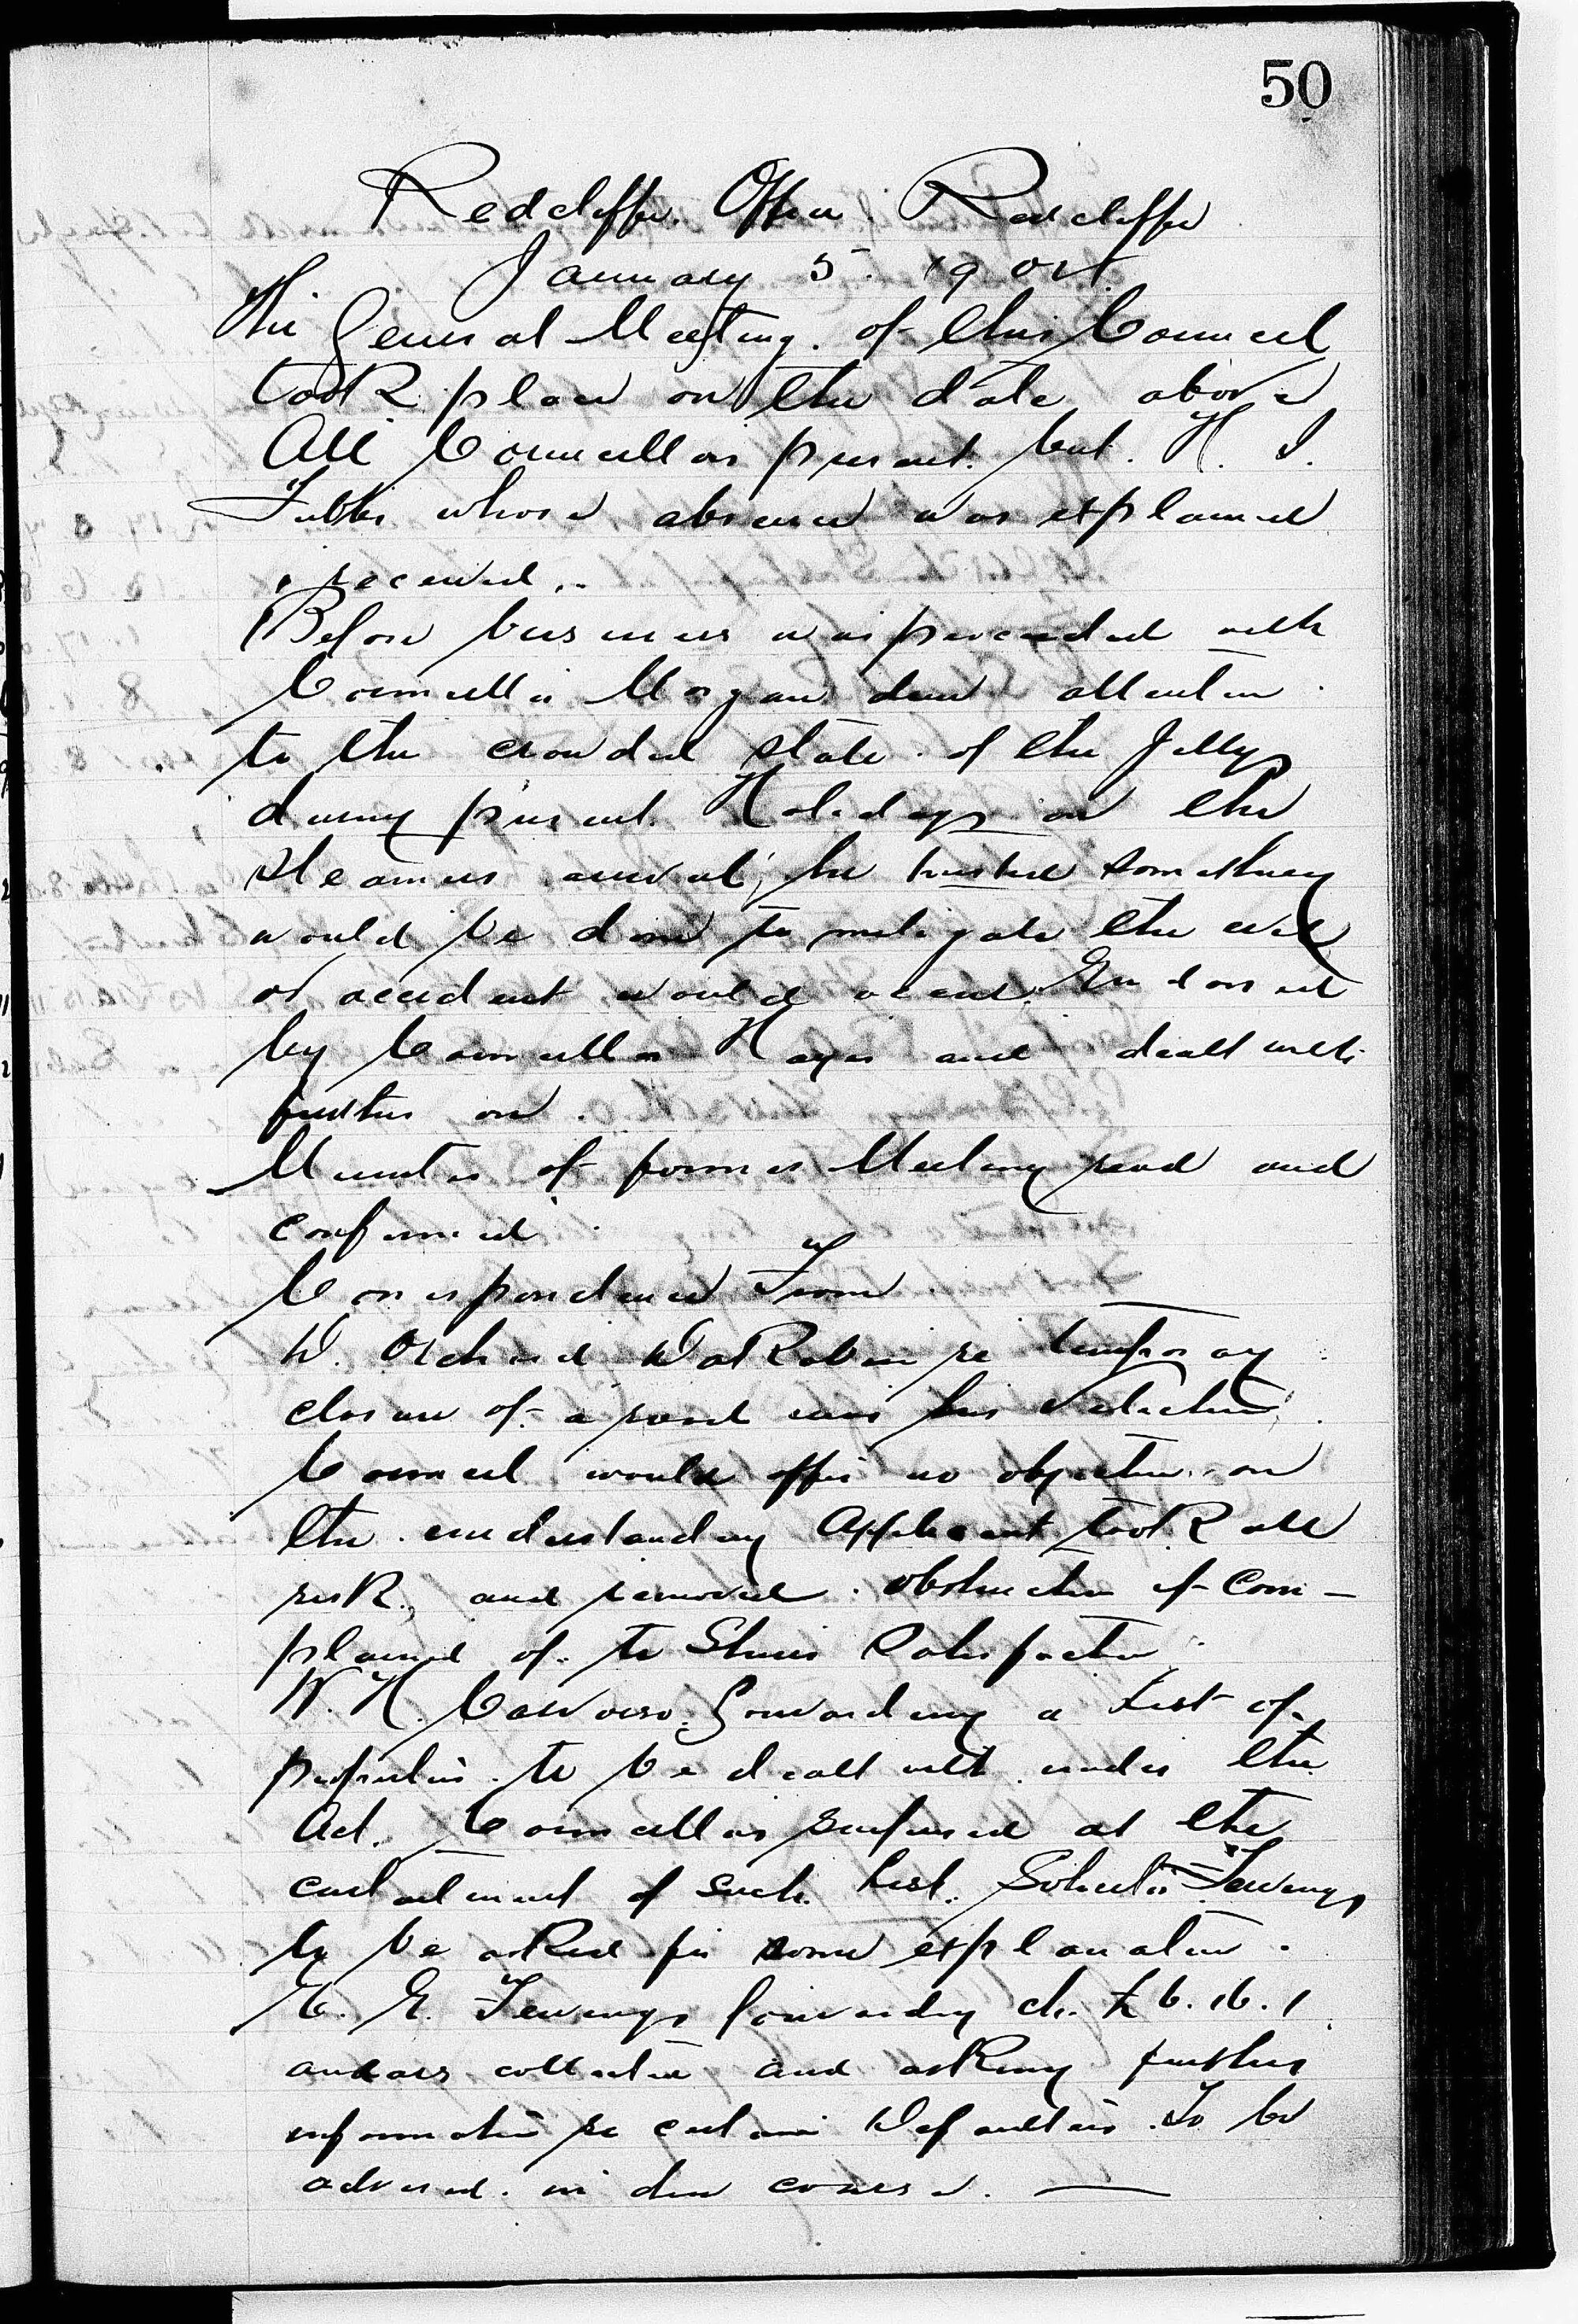 50
Redcliffe Office Redcliffe
January 5. 1901.
The General Meeting of this Council
took place on the date above
All Councillors present but H. J.
Tubbs whose absence was explained
& received.
Before business was proceeded with
Councillor Morgan drew attention
to the crowded state of the Jetty
during present Holidays on the
steamers arrival, he trusted something
would be done to mitigate the evil
or accident would occur. Endorsed
by Councillor Hayes and dealt with
further on.
Minutes of former Meeting read and
confirmed.
Correspondence From
W. Orchard re temporary
closure of a road his
Council would offer no objection on
the understanding Applicant took all
risk, and removed obstruction if com-
plained of to Shires Satisfaction.
W. H. forwarding a List of
properties to be dealt with under the
Act. Councillors surprised at the
curtailment of such List. Solicitor Tewings
to be asked for some explanation.
E. E. Tewings forwarding ch. £ 6. 16. 1
arrears collected and asking further
information re certain Defaulters. To be
advised in due course. —